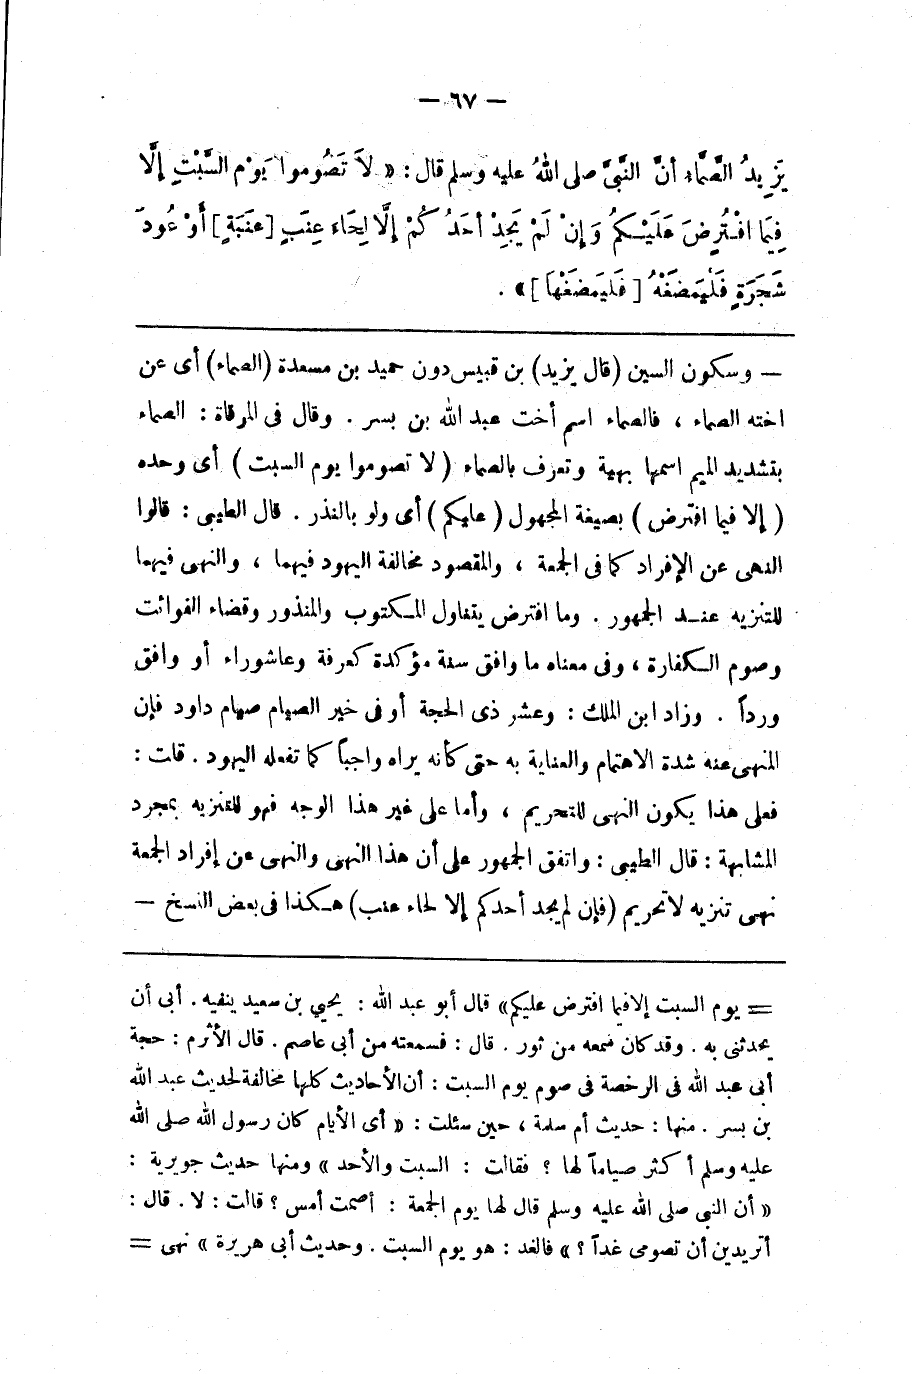 — ٦٧ —
يَزِيدُ الصَّمَّاءِ أنَّ النَّبِىَّ صلى اللهُ عليه وسلم قال : « لاَ تَصُوموا يَوْم السَّبْتِ إلَّا
فِيمَا افْتُرِضَ عَلَيْـكُمْ وَإنْ لَمْ يَجِدْ أحَدُ كُمْ إلَّا لِحَاءَ عِنَبٍ [عنَبَةٍ] أَوْ عُودَ
شَجَرَةٍ فَلْيَمضَغْهُ [ فَلْيَمضَغْهَا ] » .
— وسكون السين (قال يزيد) بن قبيس دون حميد بن مسعدة (الصماء) أى عن
اخته الصماء ، فالصماء اسم أخت عبد الله بن بسر . وقال فى المرقاة : الصماء
بتشديد الميم اسمها بهية وتعرف بالصماء ( لا تصوموا يوم السبت ) أى وحده
( إلا فيما افترض ) بصيغة المجهول ( عليكم ) أى ولو بالنذر . قال الطيبى : قالوا
النهى عن الإفراد كما فى الجمعة ، والمقصود مخالفة اليهود فيهما ، والنهى فيهما
للتنزيه عنـد الجمهور . وما افترض يتناول المـكتوب والمنذور وقضاء الفوائت
وصوم الـكفارة ، وفى معناه ما وافق سنة مؤكدة كعرفة وعاشوراء أو وافق
ورداً . وزاد ابن الملك : وعشر ذى الحجة أو فى خير الصيام صيام داود فإن
المنهى عنه شدة الاهتمام والعناية به حتى كأنه يراه واجباً كما تفعله اليهود . قلت :
فعلى هذا يكون النهى للتحريم ، وأما على غير هذا الوجه فهو للتنزيه بمجرد
المشابهة : قال الطيبى : واتفق الجمهور على أن هذا النهى والنهى عن إفراد الجمعة
نهى تنزيه لا تحريم (فإن لم يجد أحدكم إلا لحاء عنب) هـكذا فى بعض النسخ —
= يوم السبت إلا فيما افترض عليكم» قال أبو عبد الله : يحيي بن سعيد ينفيه . أبى أن
يحدثنى به . وقد كان سمعه من ثور . قال : فسمعته من أبى عاصم . قال الأثرم : حجة
أبى عبد الله فى الرخصة فى صوم يوم السبت : أن الأحاديث كلها مخالفة لحديث عبد الله
بن بسر . منها : حديث أم سلمة ، حين سئلت : « أى الأيام كان رسول الله صلى الله
عليه وسلم أكثر صياماً لها ؟ فقالت : السبت والأحد » ومنها حديث جويرية :
« أن النبى صلى الله عليه وسلم قال لها يوم الجمعة : أصمت أمس ؟ قالت : لا . قال :
أتريدين أن تصومى غداً ؟ » فالغد : هو يوم السبت . وحديث أبى هريرة » نهى =